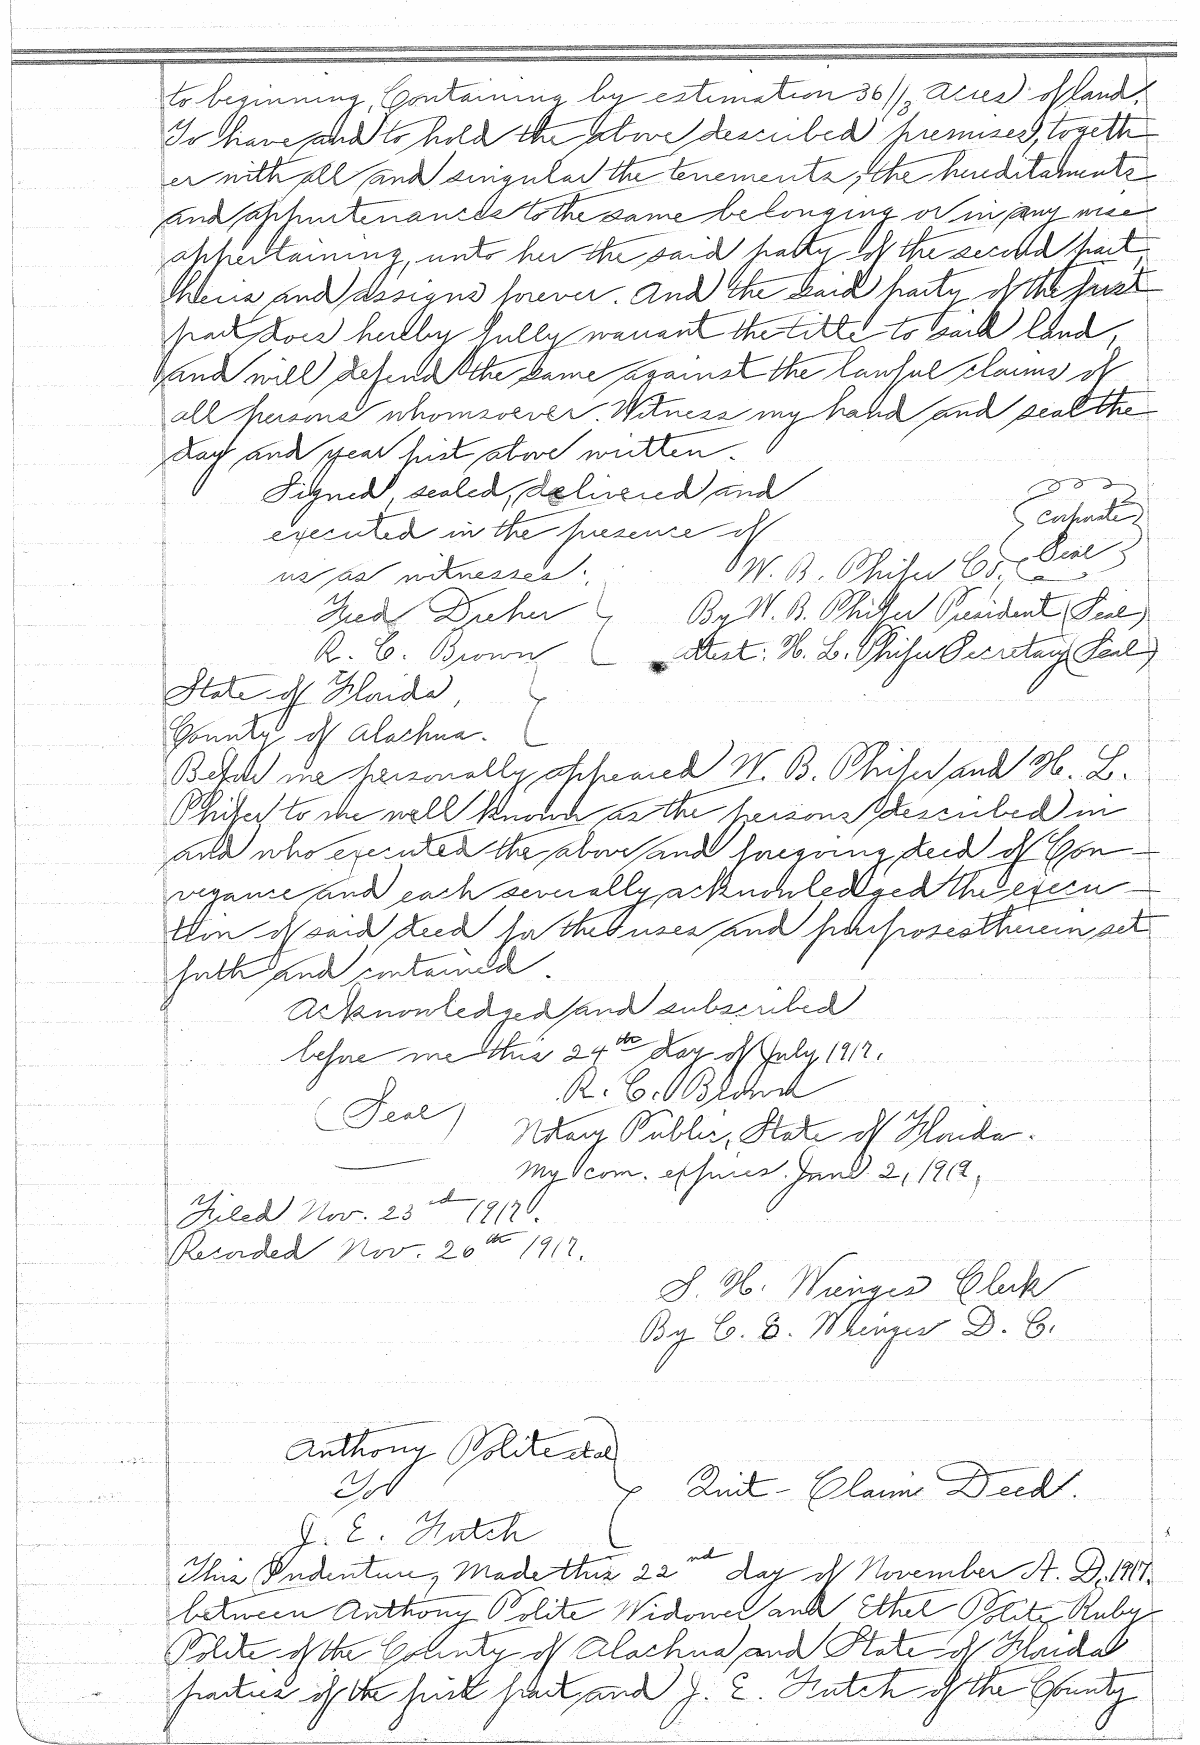 to beginning, Containing by estimation 36 1/3 acres of land.
To have and to hold the above described premises, togeth
er with all and singular the tenements, the hereditaments
and appurtenances to the same belonging or in any wise
appertaining, unto her the said party of the second part,
heirs and assigns forever. And the said party of the first
part does hereby fully warrant the title to said land,
and will defend the same against the lawful claims of
all persons whomsoever. Witness my hand and seal the
day and year first above written.
Signed, sealed, delivered and
executed in the presence of
us as witnesses:
Corporate
Seal
W. B. Phifer Co.,
Fred Dreher
By W. B. Phifer President (Seal)
R. C. Brown
Attest: H. L. Phifer Secretary (Seal)
State of Florida,
County of Alachua.
Before me personally appeared W. B. Phifer and H. L.
Phifer to me well known as the persons described in
and who executed the above and foregoing deed of Con-
veyance and each severally acknowledged the execu-
tion of said deed for the uses and purposes therein set
forth and contained.
Acknowledged and subscribed
before me this 24th day of July 1917.
R. C. Brown
(Seal)
Notary Public, State of Florida.
My com. expires June 2, 1919,
Filed Nov. 23rd 1917.
Recorded Nov. 26th 1917.
S. H. Wienges Clerk
By C. E. Wienges D. C.
Anthony Polite et al
To
Quit-Claim Deed.
J. E. Futch
This Indenture, Made this 22nd day of November A. D. 1917.
between Anthony Polite Widower and Ethel Polite Ruby
Polite of the County of Alachua and State of Florida
parties of the first part, and J. E. Futch of the County